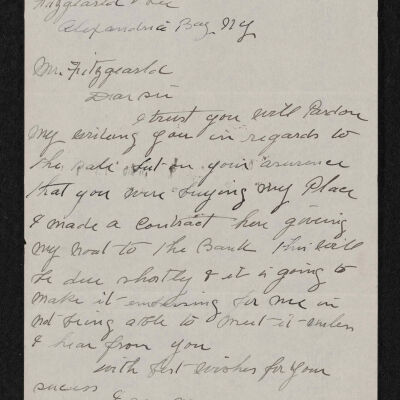 Fitzgearld & Lee
Alexandria Bay, NY
Mr. Fitzgearld
Dear Sir
I trust you will Pardon
My writang you in regards to
the sale but on your asurence
that you were buying my Place
I made a contract here giving
my Noat to the Bank this will
be due shortly & it is going to
make it embarrsing for me in
not being able to meet it unless
I hear from you
with best wishes for your
sucess